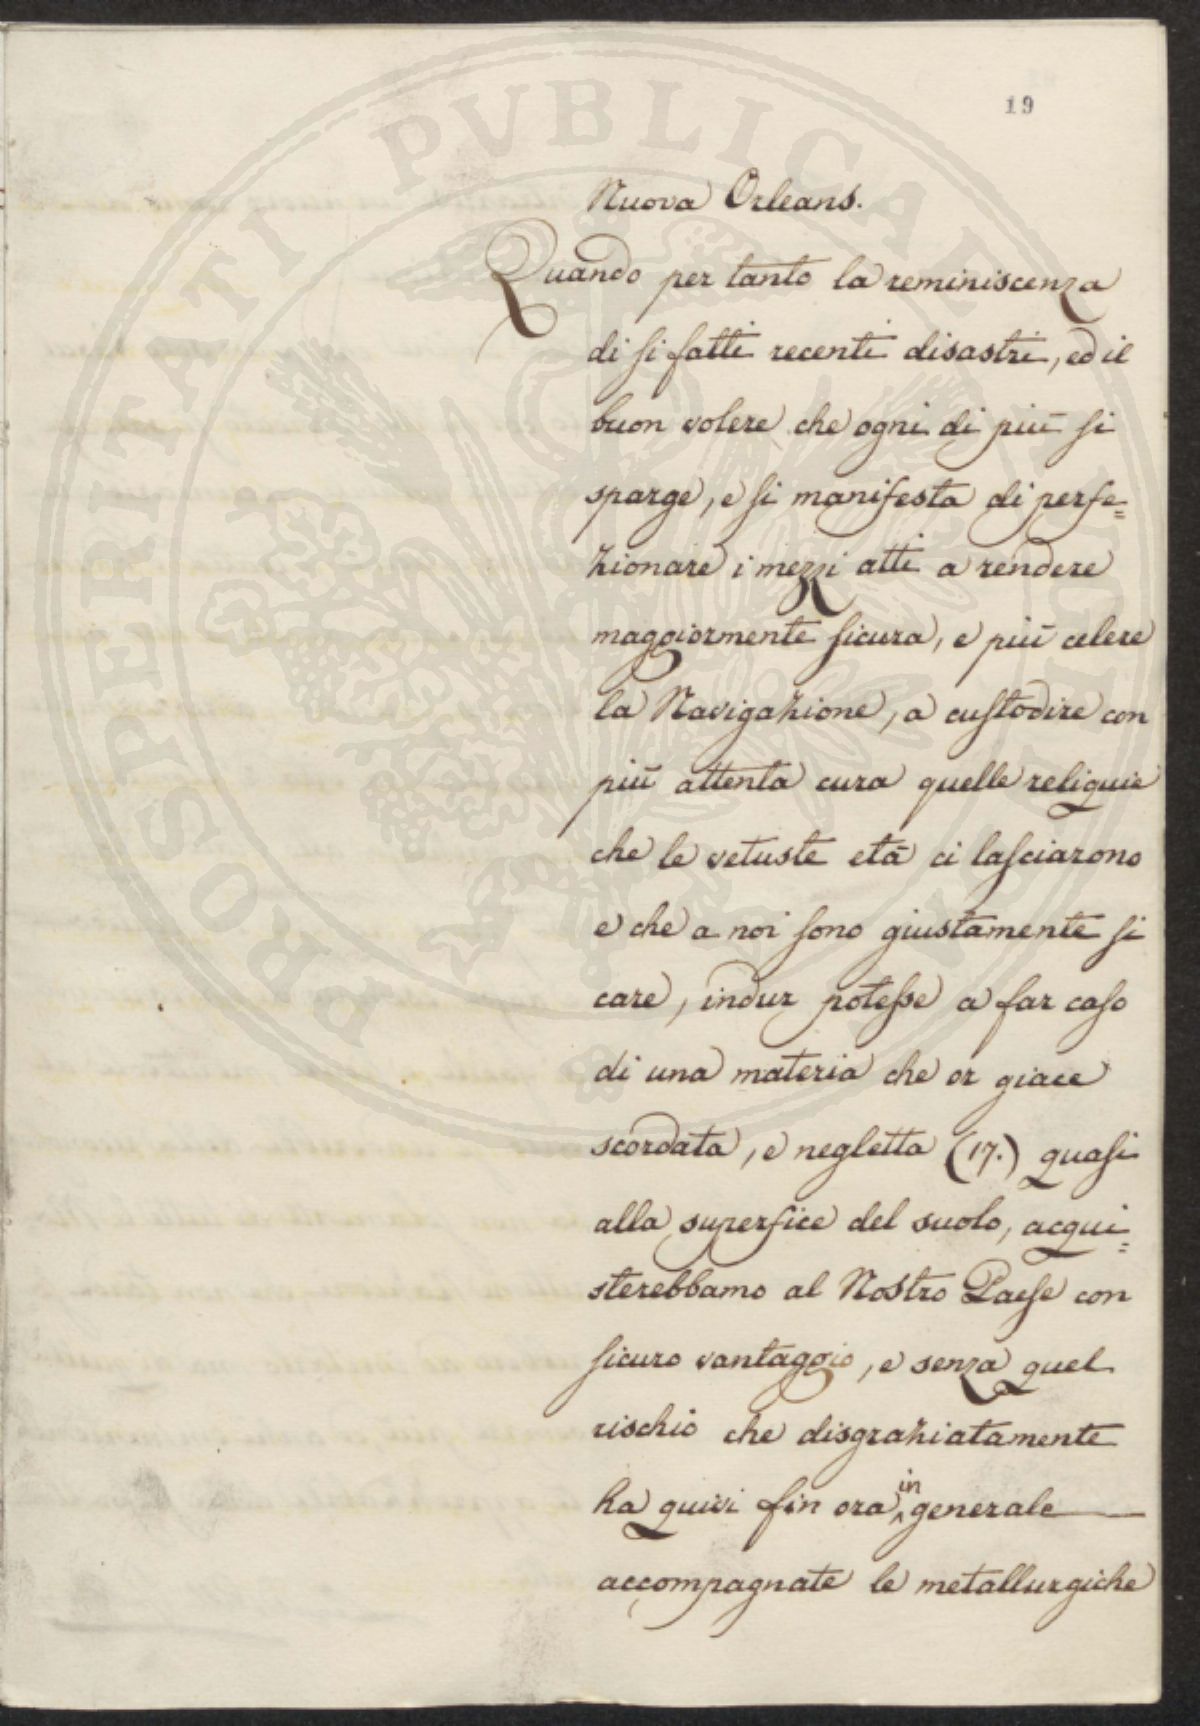 PROSPERITATI PUBLICAE AUGENDAE
19
Nuova Orleans.
Quando per tanto la reminiscenza
di si fatti recenti disastri, ed il
buon volere che ogni dì più si
sparge, e si manifesta di perfe=
zionare i mezzi atti a rendere
maggiormente sicura, e più celere
la Navigazione, a custodire con
più attenta cura quelle reliquie
che le vetuste età ci lasciarono
e che a noi sono giustamente sì
care, indur potesse a far caso
di una materia che or giace
scordata, e negletta (17.) quasi
alla superfice del suolo, acqui=
sterebbamo al Nostro Paese con
sicuro vantaggio, e senza quel
rischio che disgraziatamente
ha quivi fin ora in generale
accompagnate le metallurgiche